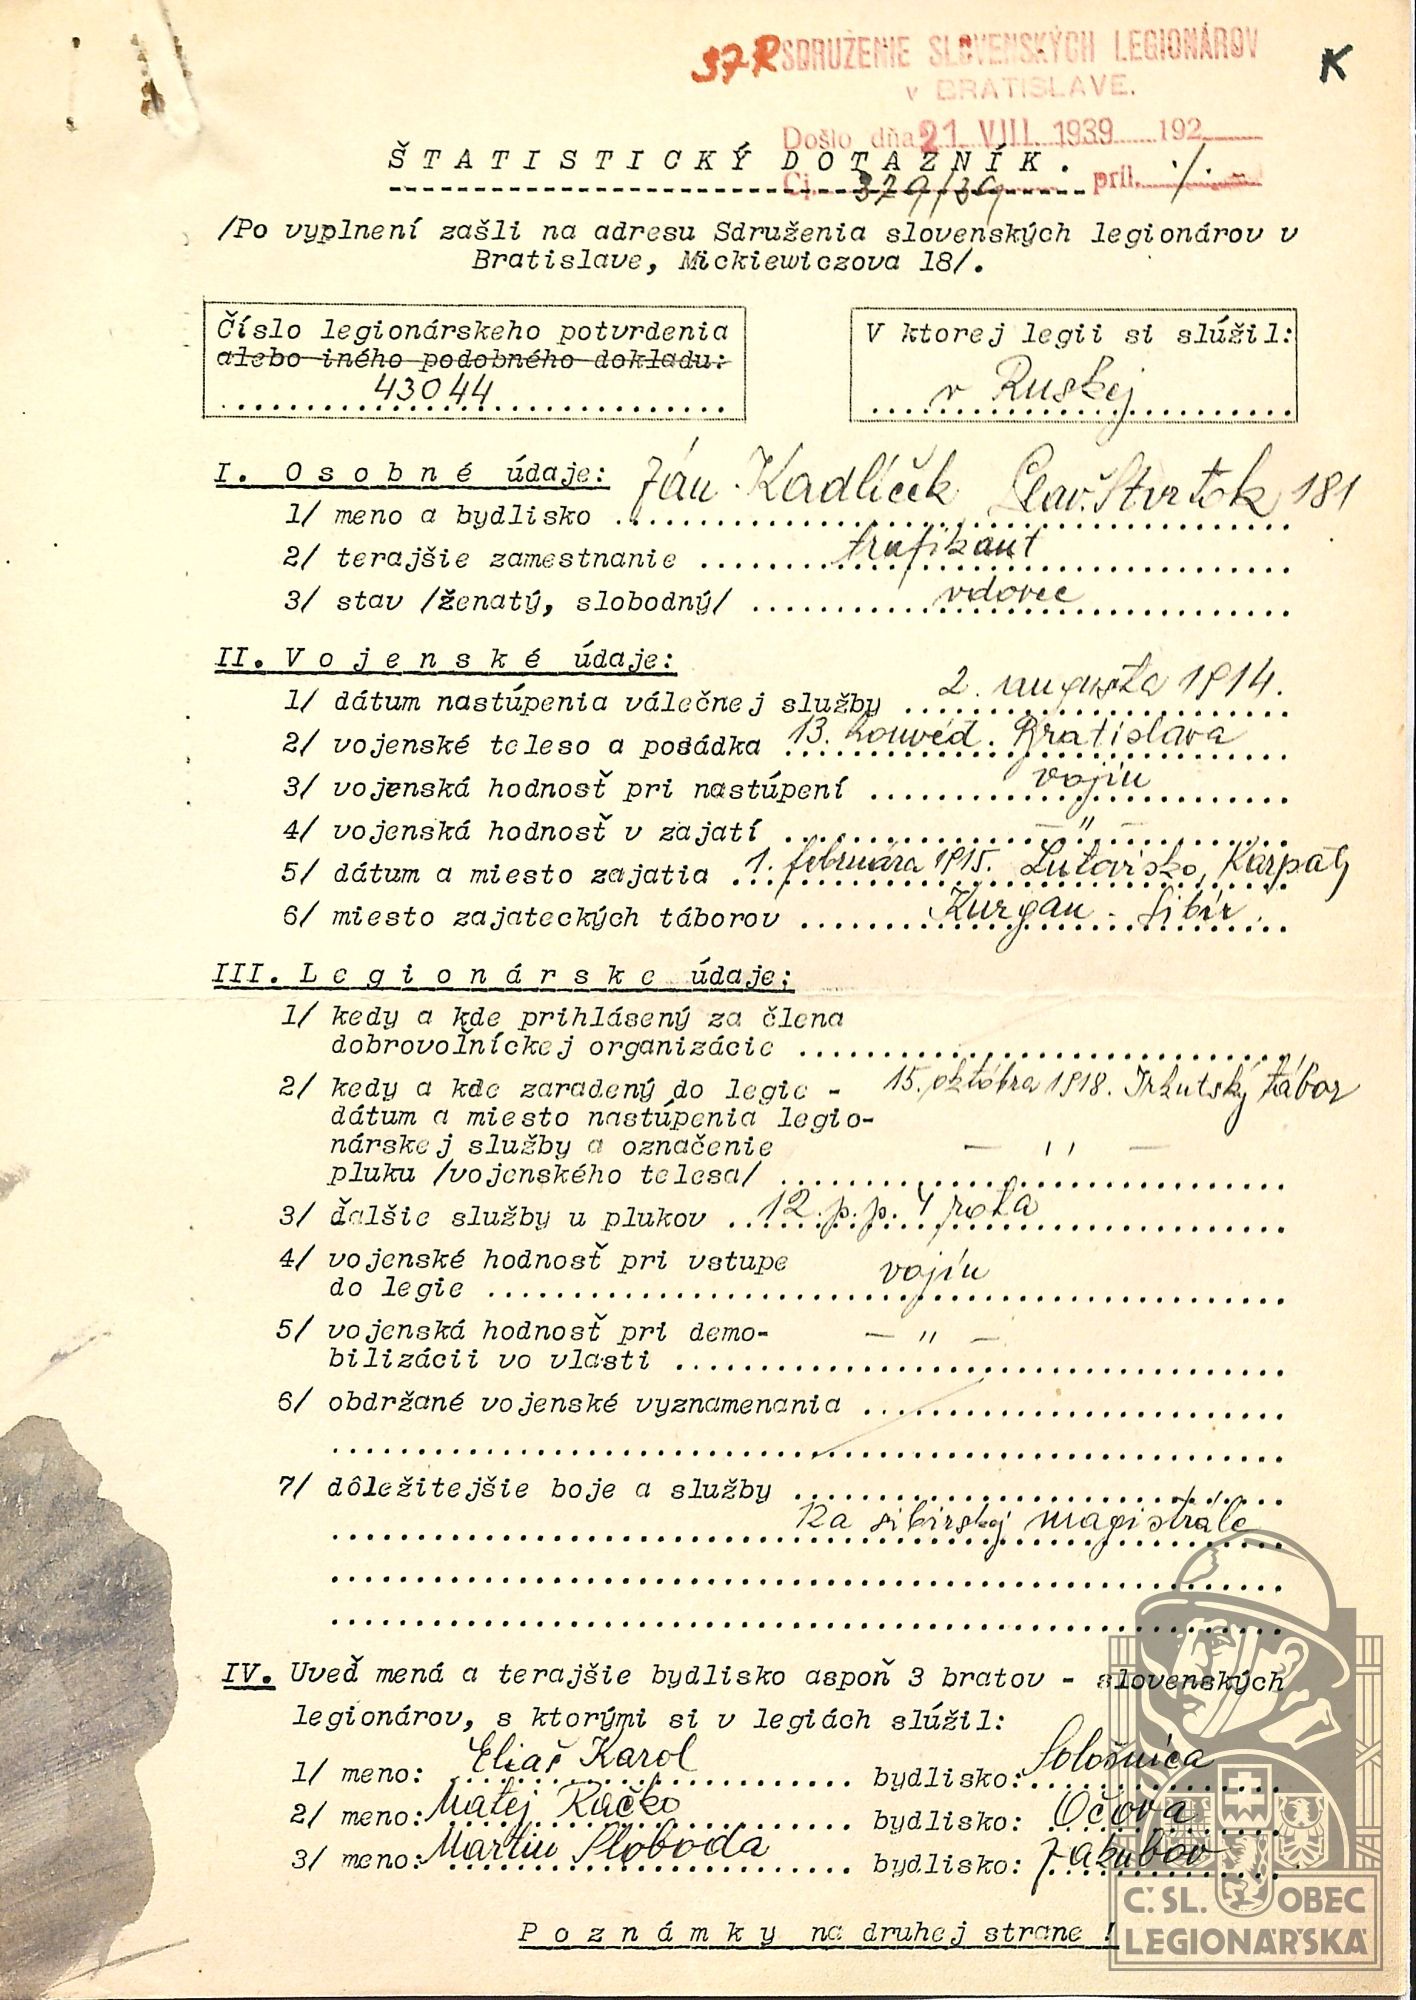 37R SDRUŽENIE SLOVENSKÝCH LEGIONÁROV K
v BRATISLAVE.
Došlo dňa 21 VIII. 1939 192
ŠTATISTICKÝ DOTAZNÍK.
Čj. 329/39 príl. ./.
/Po vyplnení zašli na adresu Sdruženia slovenských legionárov v
Bratislave, Mickiewiczova 18/.
Číslo legionárskeho potvrdenia
alebo iného podobného dokladu:
43044
V ktorej legii si slúžil:
v Ruskej
I. Osobné údaje:
1/ meno a bydlisko Ján Kadlíček Plav. Štvrtok 181
2/ terajšie zamestnanie trafikant
3/ stav /ženatý, slobodný/ vdovec
II. Vojenské údaje:
1/ dátum nastúpenia válečnej služby 2. augusta 1914.
2/ vojenské teleso a posádka 13. honvéd. Bratislava
3/ vojenská hodnosť pri nastúpení vojín
4/ vojenská hodnosť v zajatí — " —
5/ dátum a miesto zajatia 1. februára 1915. Lutovisko, Karpaty
6/ miesto zajateckých táborov Kurgan - Sibír.
III. Legionárske údaje:
1/ kedy a kde prihlásený za člena
dobrovoľníckej organizácie
2/ kedy a kde zaradený do legie - 15. októbra 1918. Irkutský tábor
dátum a miesto nastúpenia legio-
nárskej služby a označenie — " —
pluku /vojenského telesa/
3/ ďalšie služby u plukov 12. p.p. 4 rota
4/ vojenské hodnosť pri vstupe
do legie vojín
5/ vojenská hodnosť pri demo- — " —
bilizácii vo vlasti
6/ obdržané vojenské vyznamenania
7/ dôležitejšie boje a služby
Na sibirskej magistrále
IV. Uveď mená a terajšie bydlisko aspoň 3 bratov - slovenských
legionárov, s ktorými si v legiách slúžil:
1/ meno: Eliaš Karol bydlisko: Sološnica
2/ meno: Matej Račko bydlisko: Očova
3/ meno: Martin Sloboda bydlisko: Jakubov
Poznámky na druhej strane !
Č SL. OBEC
LEGIONÁŘSKÁ